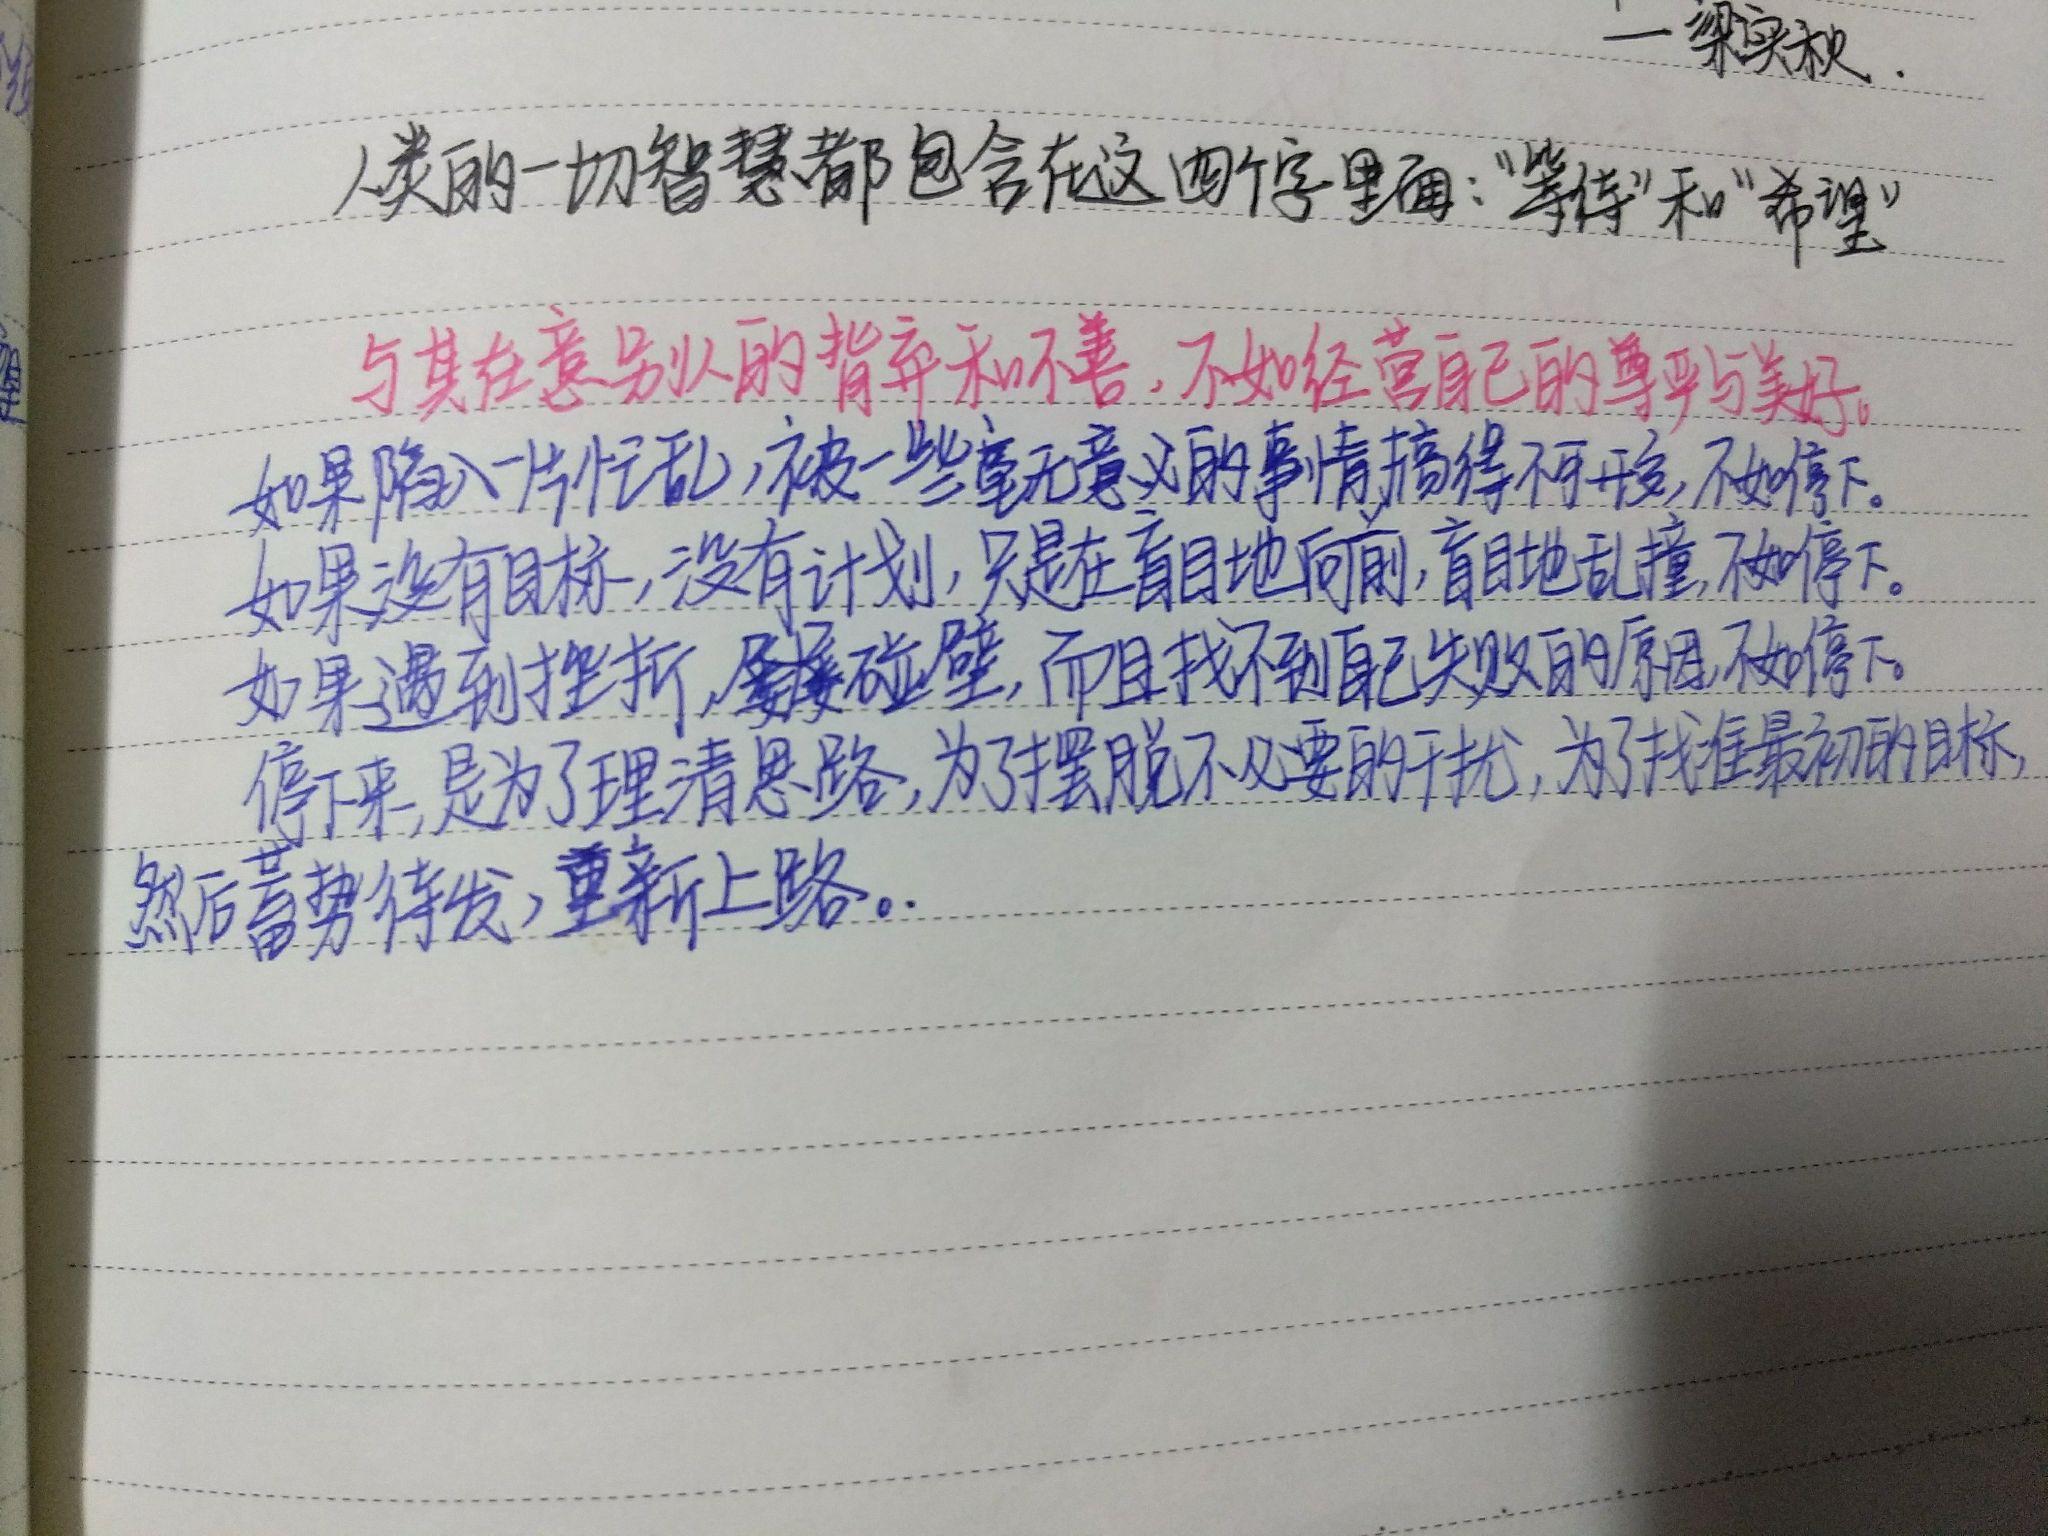 一梁实秋.
人类的一切智慧都包含在这四个字里面:“等待”和“希望”
与其在意别人的背弃和不善,不如经营自己的尊严与美好。
如果陷入一片忙乱,被一些毫无意义的事情搞得不可形,不如停下。
如果没有目标,没有计划,只是在盲目地向前,盲目地乱撞,不如停下。
如果遇到挫折,屡屡碰壁,而且找不到自己失败的原因,不如停下。
停下来,是为了理清思路,为了摆脱不必要的干扰,为了找准最初的目标,
然后蓄势待发,重新上路。.